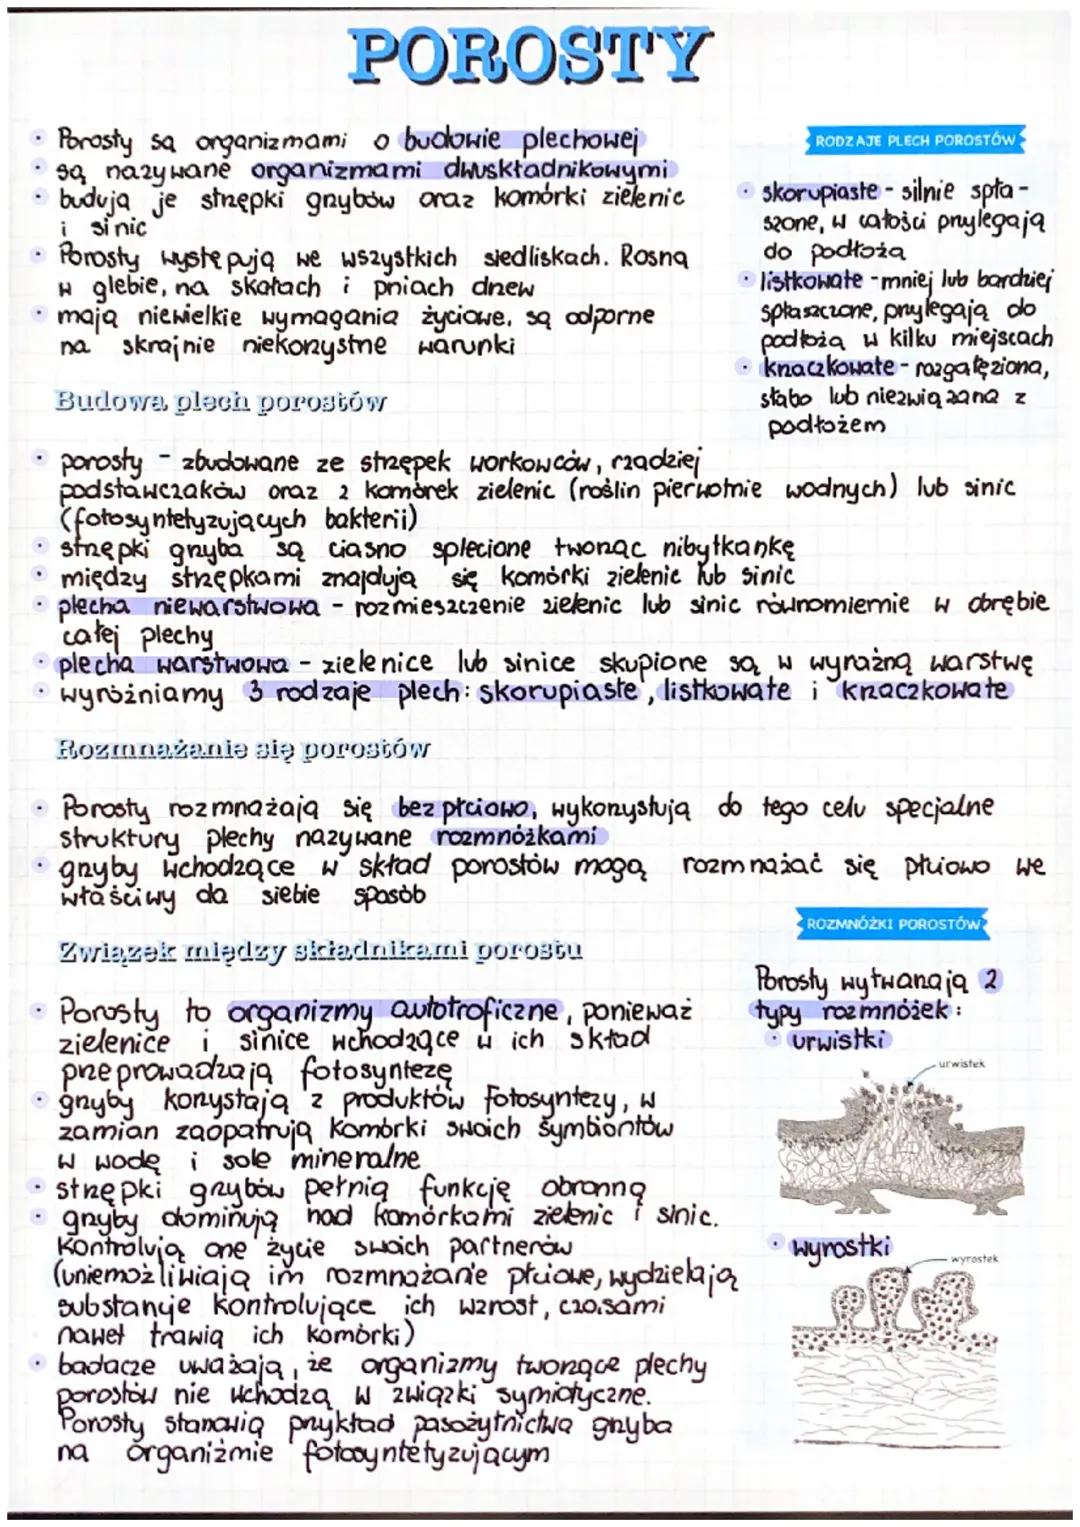 POROSTY
• Porosty są organizmami o budowie plechowej
• są nazywane organizmami dwuskładnikowymi
• budują je strzępki grzybów oraz komórki zielenic
i sinic
• Porosty występują we wszystkich siedliskach. Rosną
w glebie, na skałach i pniach drzew
• mają niewielkie wymagania życiowe, są odporne
na skrajnie niekorzystne warunki
RODZAJE PLECH POROSTÓW
• skorupiaste - silnie spła-
szone, w całości przylegają
do podłoża
• listkowate - mniej lub bardziej
spłaszczone, przylegają do
podłoża w kilku miejscach
• krzaczkowate - rozgałęziona,
słabo lub niezwiązana z
podłożem
Budowa plech porostów
• porosty - zbudowane ze strzępek workowców, rzadziej
podstawczaków oraz z komórek zielenic (roślin pierwotnie wodnych) lub sinic
(fotosyntetyzujących bakterii)
• strzępki grzyba są ciasno splecione tworząc nibytkankę
• między strzępkami znajdują się komórki zielenic lub sinic
• plecha niewarstwowa - rozmieszczenie zielenic lub sinic równomiernie w obrębie
całej plechy
• plecha warstwowa - zielenice lub sinice skupione są w wyraźną warstwę
• wyróżniamy 3 rodzaje plech: skorupiaste, listkowate i krzaczkowate
Rozmnażanie się porostów
• Porosty rozmnażają się bezpłciowo, wykorzystują do tego celu specjalne
struktury plechy nazywane rozmnóżkami
• grzyby wchodzące w skład porostów mogą rozmnażać się płciowo we
właściwy da siebie sposób
Związek między składnikami porostu
• Porosty to organizmy autotroficzne, ponieważ
zielenice i sinice wchodzące w ich skład
przeprowadzają fotosyntezę
• grzyby korzystają z produktów fotosyntezy, w
zamian zaopatrują komórki swoich symbiontów
w wodę i sole mineralne
• strzępki grzybów pełnią funkcję obronną
• grzyby dominują nad komórkami zielenic i sinic.
Kontrolują one życie swoich partnerów
(uniemożliwiają im rozmnażanie płciowe, wydzielają
substancje kontrolujące ich wzrost, czasami
nawet trawią ich komórki)
• badacze uważają, że organizmy tworzące plechy
porostów nie wchodzą w związki symiotyczne.
Porosty stanowią przykład pasożytnictwa grzyba
na organizmie fotosyntetyzującym
ROZMNÓŻKI POROSTÓW
Porosty wytwarzają 2
typy rozmnóżek:
• urwistki
urwistek
• wyrostki
wyrostek